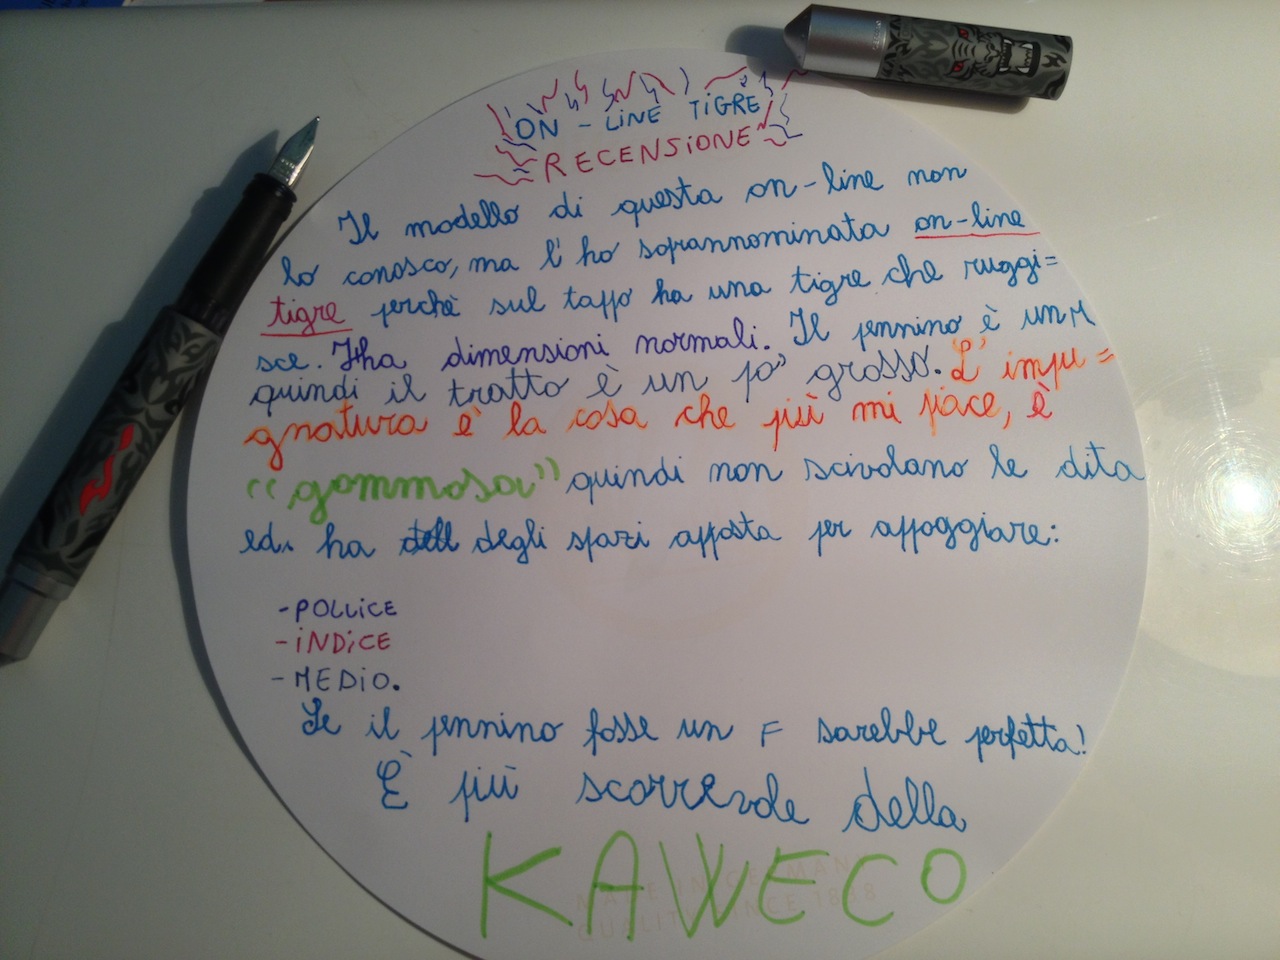 ON - LINE TIGRE
RECENSIONE
Il modello di questa on-line non
lo conosco, ma l'ho soprannominata on-line
tigre perchè sul tappo ha una tigre che ruggi=
sce. Ha dimensioni normali. Il pennino è un M
quindi il tratto è un po' grosso. L'impu=
gnatura è la cosa che più mi piace, è
"gommosa" quindi non scivolano le dita
ed ha degli spazi apposta per appoggiare:
-POLLICE
-INDICE
-MEDIO.
Se il pennino fosse un F sarebbe perfetta!
È più scorrevole della
KAWECO
MADE IN GERMANY
QUALITY SINCE 1888